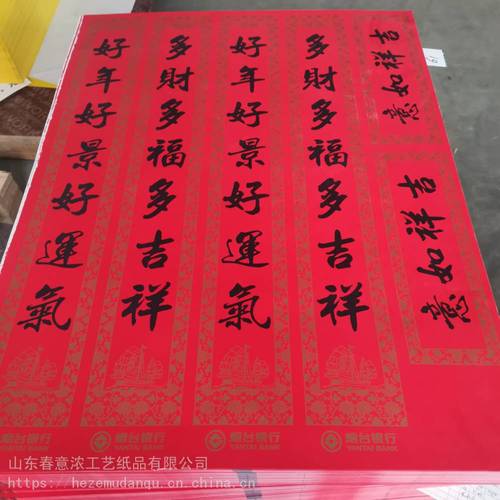 好年好景好運氣
多財多福多吉祥
好年好景好運氣
多財多福多吉祥
吉祥如意
吉祥如意
烟台银行
YANTAI BANK
烟台银行
YANTAI BANK
烟台银行
YANTAI BANK
烟台银行
YANTAI BANK
山东春意浓工艺纸品有限公司
https://hezemudanqu.cn.china.cn